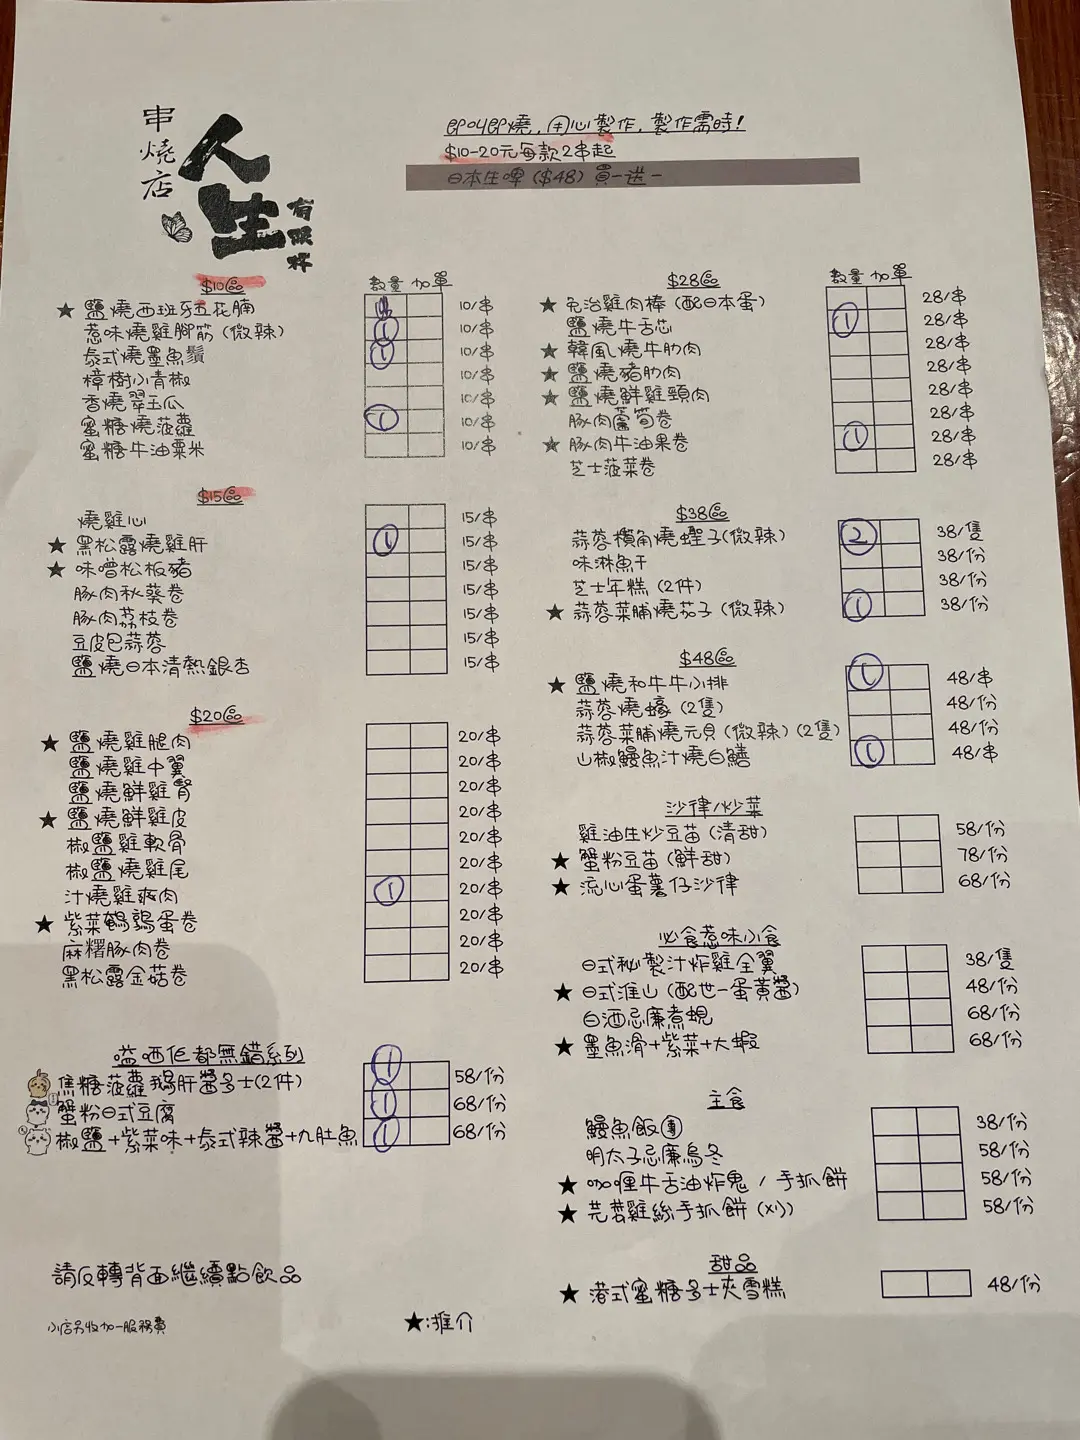 串燒店
人生
有限杯
即叫即燒，用心製作，製作需時！
$10-20元每款2串起
日本生啤 ($48) 買一送一
$10區 數量 加單
★ 鹽燒西班牙五花腩 10/串
惹味燒雞腳筋 (微辣) ① 10/串
泰式燒墨魚鬚 ① 10/串
樟樹小青椒 10/串
香燒翠玉瓜 10/串
蜜糖燒菠蘿 ① 10/串
蜜糖牛油粟米 10/串
$15區
燒雞心 15/串
★ 黑松露燒雞肝 ① 15/串
★ 味噌松板豬 15/串
豚肉秋葵卷 15/串
豚肉荔枝卷 15/串
豆皮包蒜蓉 15/串
鹽燒日本清熱銀杏 15/串
$20區
★ 鹽燒雞腿肉 20/串
鹽燒雞中翼 20/串
鹽燒鮮雞腎 20/串
★ 鹽燒鮮雞皮 20/串
椒鹽雞軟骨 20/串
椒鹽燒雞尾 20/串
汁燒雞爽肉 ① 20/串
★ 紫菜鵪鶉蛋卷 20/串
麻糬豚肉卷 20/串
黑松露金菇卷 20/串
嗌哂佢都無錯系列
焦糖菠蘿鵝肝醬多士(2件) ① 58/份
蟹粉日式豆腐 ① 68/份
椒鹽+紫菜味+泰式辣醬+九肚魚 ① 68/份
請反轉背面繼續點飲品
小店另收加一服務費
★:推介
$28區 數量 加單
★ 免治雞肉棒 (配日本蛋) 28/串
鹽燒牛舌芯 ① 28/串
★ 韓風燒牛肋肉 28/串
★ 鹽燒豬肋肉 28/串
★ 鹽燒鮮雞頸肉 28/串
豚肉蘆筍卷 28/串
★ 豚肉牛油果卷 ① 28/串
芝士菠菜卷 28/串
$38區
蒜蓉欖角燒蟶子(微辣) ② 38/隻
味淋魚干 38/份
芝士年糕 (2件) 38/份
★ 蒜蓉菜脯燒茄子 (微辣) ① 38/份
$48區
★ 鹽燒和牛牛小排 ① 48/串
蒜蓉燒蠔 (2隻) 48/份
蒜蓉菜脯燒元貝 (微辣) (2隻) 48/份
山椒鰻魚汁燒白鱔 ① 48/串
沙律/炒菜
雞油生炒豆苗 (清甜) 58/份
★ 蟹粉豆苗 (鮮甜) 78/份
★ 流心蛋薯仔沙律 68/份
必食惹味小食
日式秘製汁炸雞全翼 38/隻
★ 日式淮山 (配世一蛋黃醬) 48/份
白酒忌廉煮蜆 68/份
★ 墨魚滑+紫菜+大蝦 68/份
主食
鰻魚飯團 38/份
明太子忌廉烏冬 58/份
★ 咖喱牛舌油炸鬼 / 手抓餅 58/份
★ 芫荽雞絲手抓餅 (刈) 58/份
甜品
★ 港式蜜糖多士夾雪糕 48/份